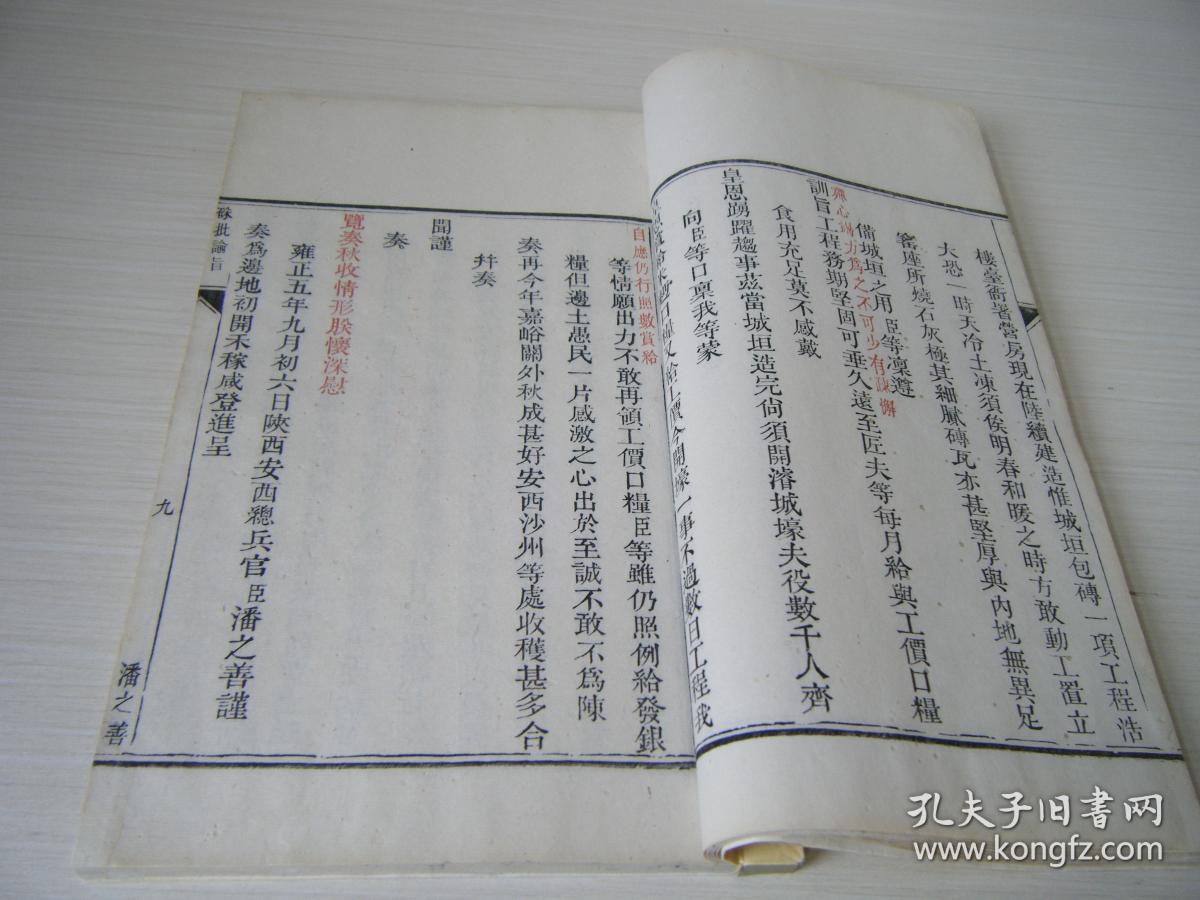 樓臺衙署營房現在陸續建造惟城垣包磚一項工程浩
大恐一時天冷土凍須俟明春和暖之時方敢動工置立
窰座所燒石灰極其細膩磚瓦亦甚堅厚與內地無異足
備城垣之用臣等凜遵
殫心竭力爲之不可少有疎懈
訓旨工程務期堅固可垂久遠至匠夫等每月給與工價口糧
食用充足莫不感戴
皇恩踴躍趨事茲當城垣造完尙須開濬城壕夫役數千人齊
向臣等口稟我等蒙
口糧又給工價今開壕一事不過數日工程我
自應仍行照數賞給
等情願出力不敢再領工價口糧臣等雖仍照例給發銀
糧但邊土愚民一片感激之心出於至誠不敢不爲陳
奏再今年嘉峪關外秋成甚好安西沙州等處收穫甚多合
幷奏
聞謹
奏
覽奏秋收情形朕懷深慰
雍正五年九月初六日陝西安西總兵官臣潘之善謹
奏爲邊地初開禾稼咸登進呈
硃批諭旨
九
潘之善
孔夫子旧书网
www.kongfz.com